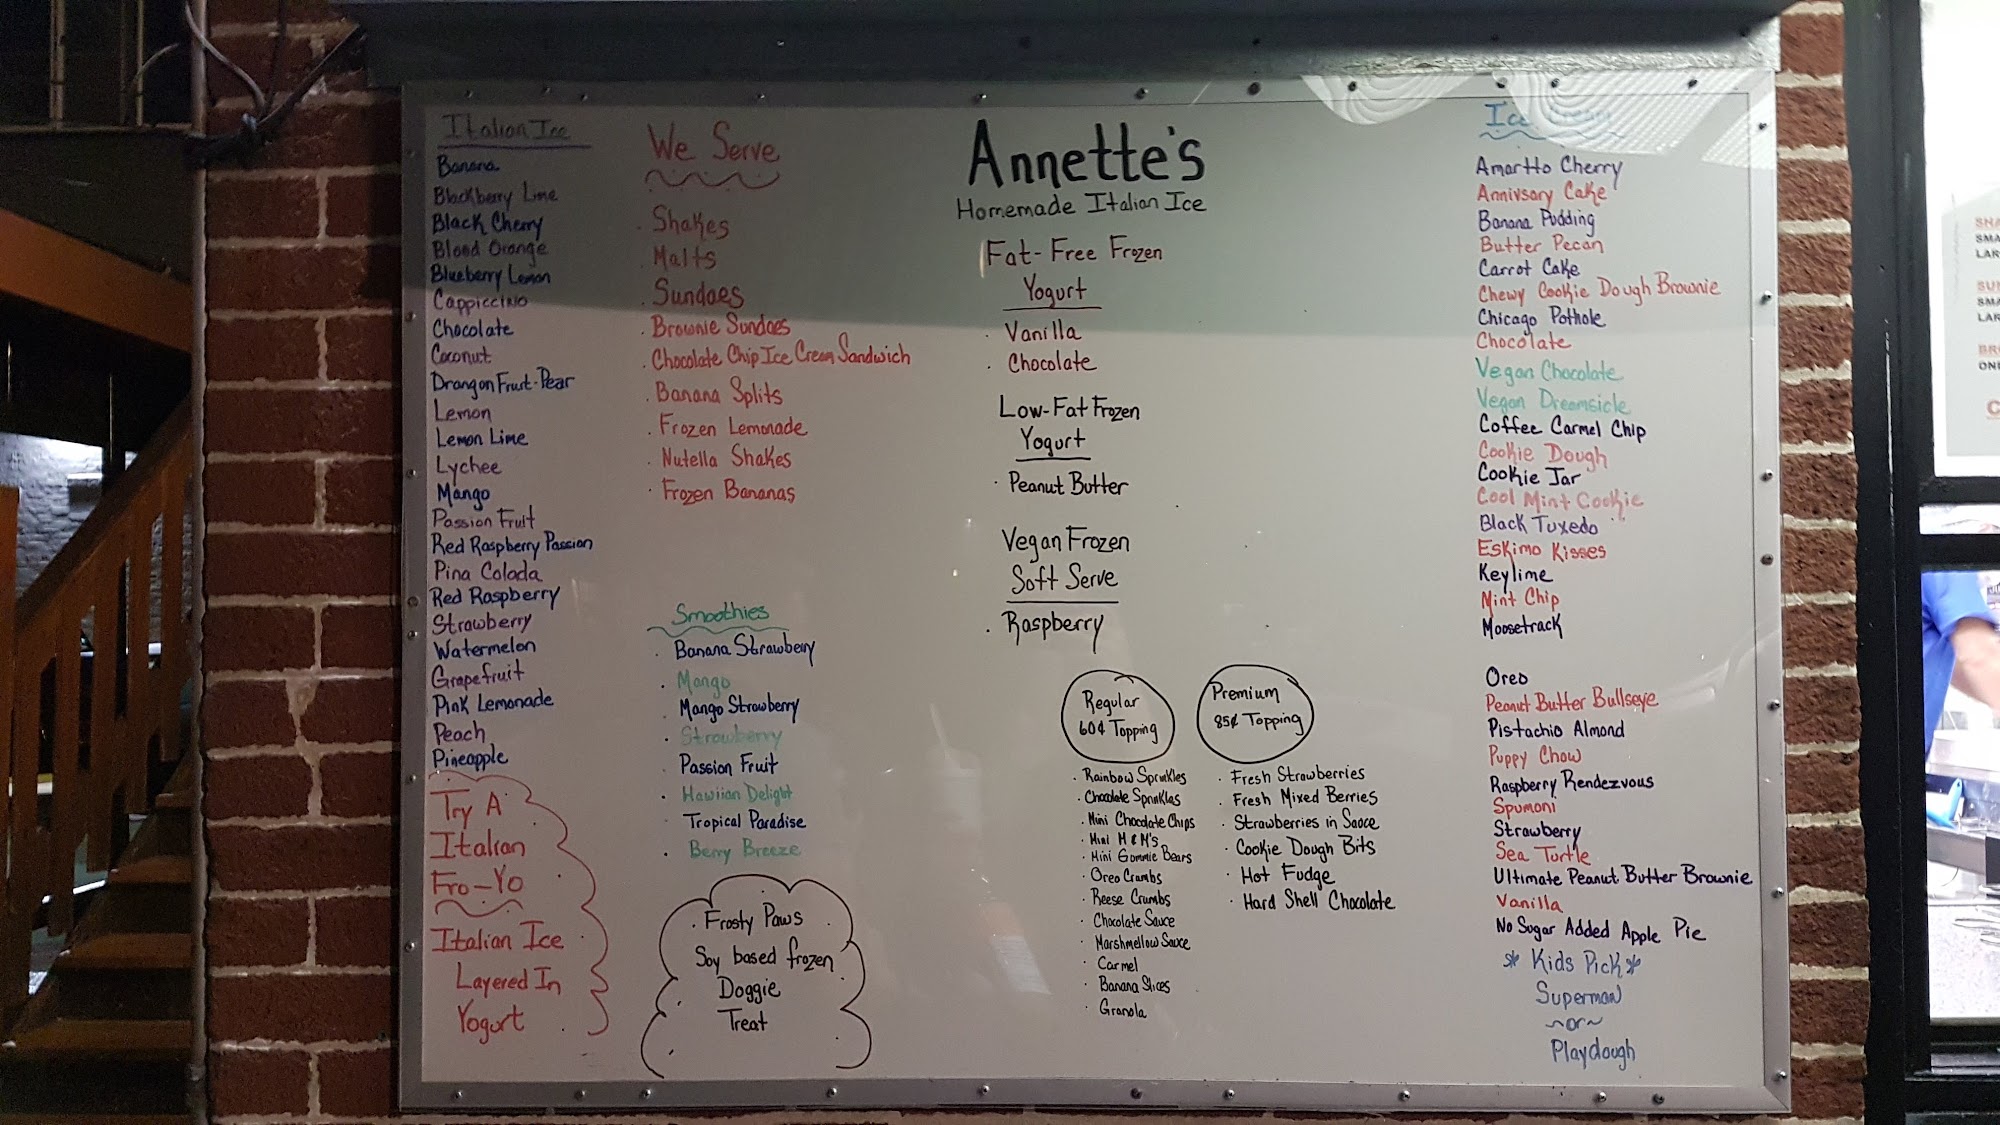 Italian Ice
Banana
Blackberry Lime
Black Cherry
Blood Orange
Blueberry Lemon
Cappiccino
Chocolate
Coconut
Drangon Fruit-Pear
Lemon
Lemon Lime
Lychee
Mango
Passion Fruit
Red Raspberry Passion
Pina Colada
Red Raspberry
Strawberry
Watermelon
Grapefruit
Pink Lemonade
Peach
Pineapple
Try A
Italian
Fro-Yo
Italian Ice
Layered In
Yogurt
We Serve
· Shakes
· Malts
· Sundaes
· Brownie Sundaes
· Chocolate Chip Ice Cream Sandwich
· Banana Splits
· Frozen Lemonade
· Nutella Shakes
· Frozen Bananas
Smoothies
· Banana Strawberry
· Mango
· Mango Strawberry
· Strawberry
· Passion Fruit
· Hawiian Delight
· Tropical Paradise
· Berry Breeze
· Frosty Paws
Soy based frozen
Doggie
Treat
Annette's
Homemade Italian Ice
Fat-Free Frozen
Yogurt
· Vanilla
· Chocolate
Low-Fat Frozen
Yogurt
· Peanut Butter
Vegan Frozen
Soft Serve
· Raspberry
Regular
60¢ Topping
· Rainbow Sprinkles
· Chocolate Sprinkles
· Mini Chocolate Chips
· Mini M & M's
· Mini Gommie Bears
· Oreo Crumbs
· Reese Crumbs
· Chocolate Sauce
· Marshmellow Sauce
· Carmel
· Banana Slices
· Granola
Premium
85¢ Topping
· Fresh Strawberries
· Fresh Mixed Berries
· Strawberries in Sauce
· Cookie Dough Bits
· Hot Fudge
· Hard Shell Chocolate
Ice Cream
Amartto Cherry
Annivsary Cake
Banana Pudding
Butter Pecan
Carrot Cake
Chewy Cookie Dough Brownie
Chicago Pothole
Chocolate
Vegan Chocolate
Vegan Dreamsicle
Coffee Carmel Chip
Cookie Dough
Cookie Jar
Cool Mint Cookie
Black Tuxedo
Eskimo Kisses
Keylime
Mint Chip
Moosetrack
Oreo
Peanut Butter Bullseye
Pistachio Almond
Puppy Chow
Raspberry Rendezvous
Spumoni
Strawberry
Sea Turtle
Ultimate Peanut Butter Brownie
Vanilla
No Sugar Added Apple Pie
* Kids Pick *
Superman
~or~
Playdough